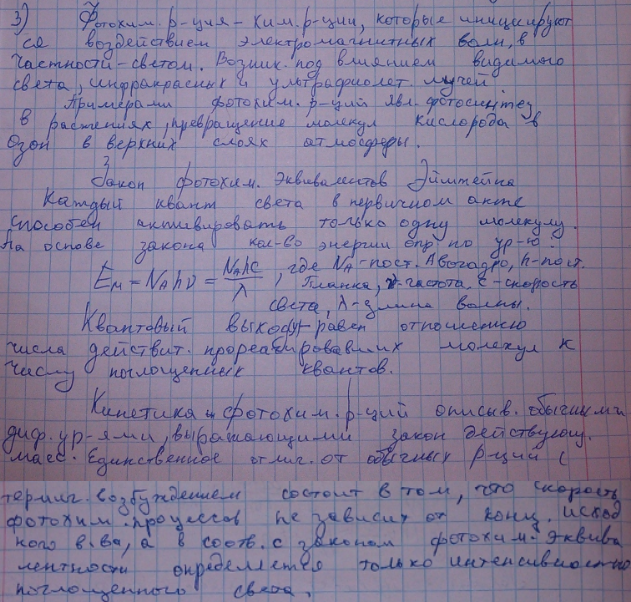 3) Фотохим. р-ция - хим. р-ции, которые инициируют
ся воздействием электромагнитных волн, в
частности - светом. Возник. под влиянием видимого
света, инфракрасных и ультрафиолет. лучей.
Примерами фотохим. р-ций явл. фотосинтез
в растениях, превращение молекул кислорода в
озон в верхних слоях атмосферы.
Закон фотохим. Эквивалентов Эйнштейна
Каждый квант света в первичном акте
способен активировать только одну молекулу.
На основе закона кол-во энергии опр. по ур-ю.
Eм = NAhν = NAhc/λ, где NA - пост. Авогадро, h - пост.
Планка, ν - частота, с - скорость
света, λ - длина волны.
Квантовый выход γ равен отношению
числа действит. прореагировавших молекул к
числу поглощенных квантов.
Кинетика фотохим. р-ций описыв. обычными
диф. ур-ями, выражающими закон действующ.
масс. Единственное отлич. от обычных р-ций с
термич. возбуждением состоит в том, что скорость
фотохим. процессов не зависит от конц. исход
ного в-ва, а в соотв. с законом фотохим. эквива
лентности определяется только интенсивностью
поглощенного света.